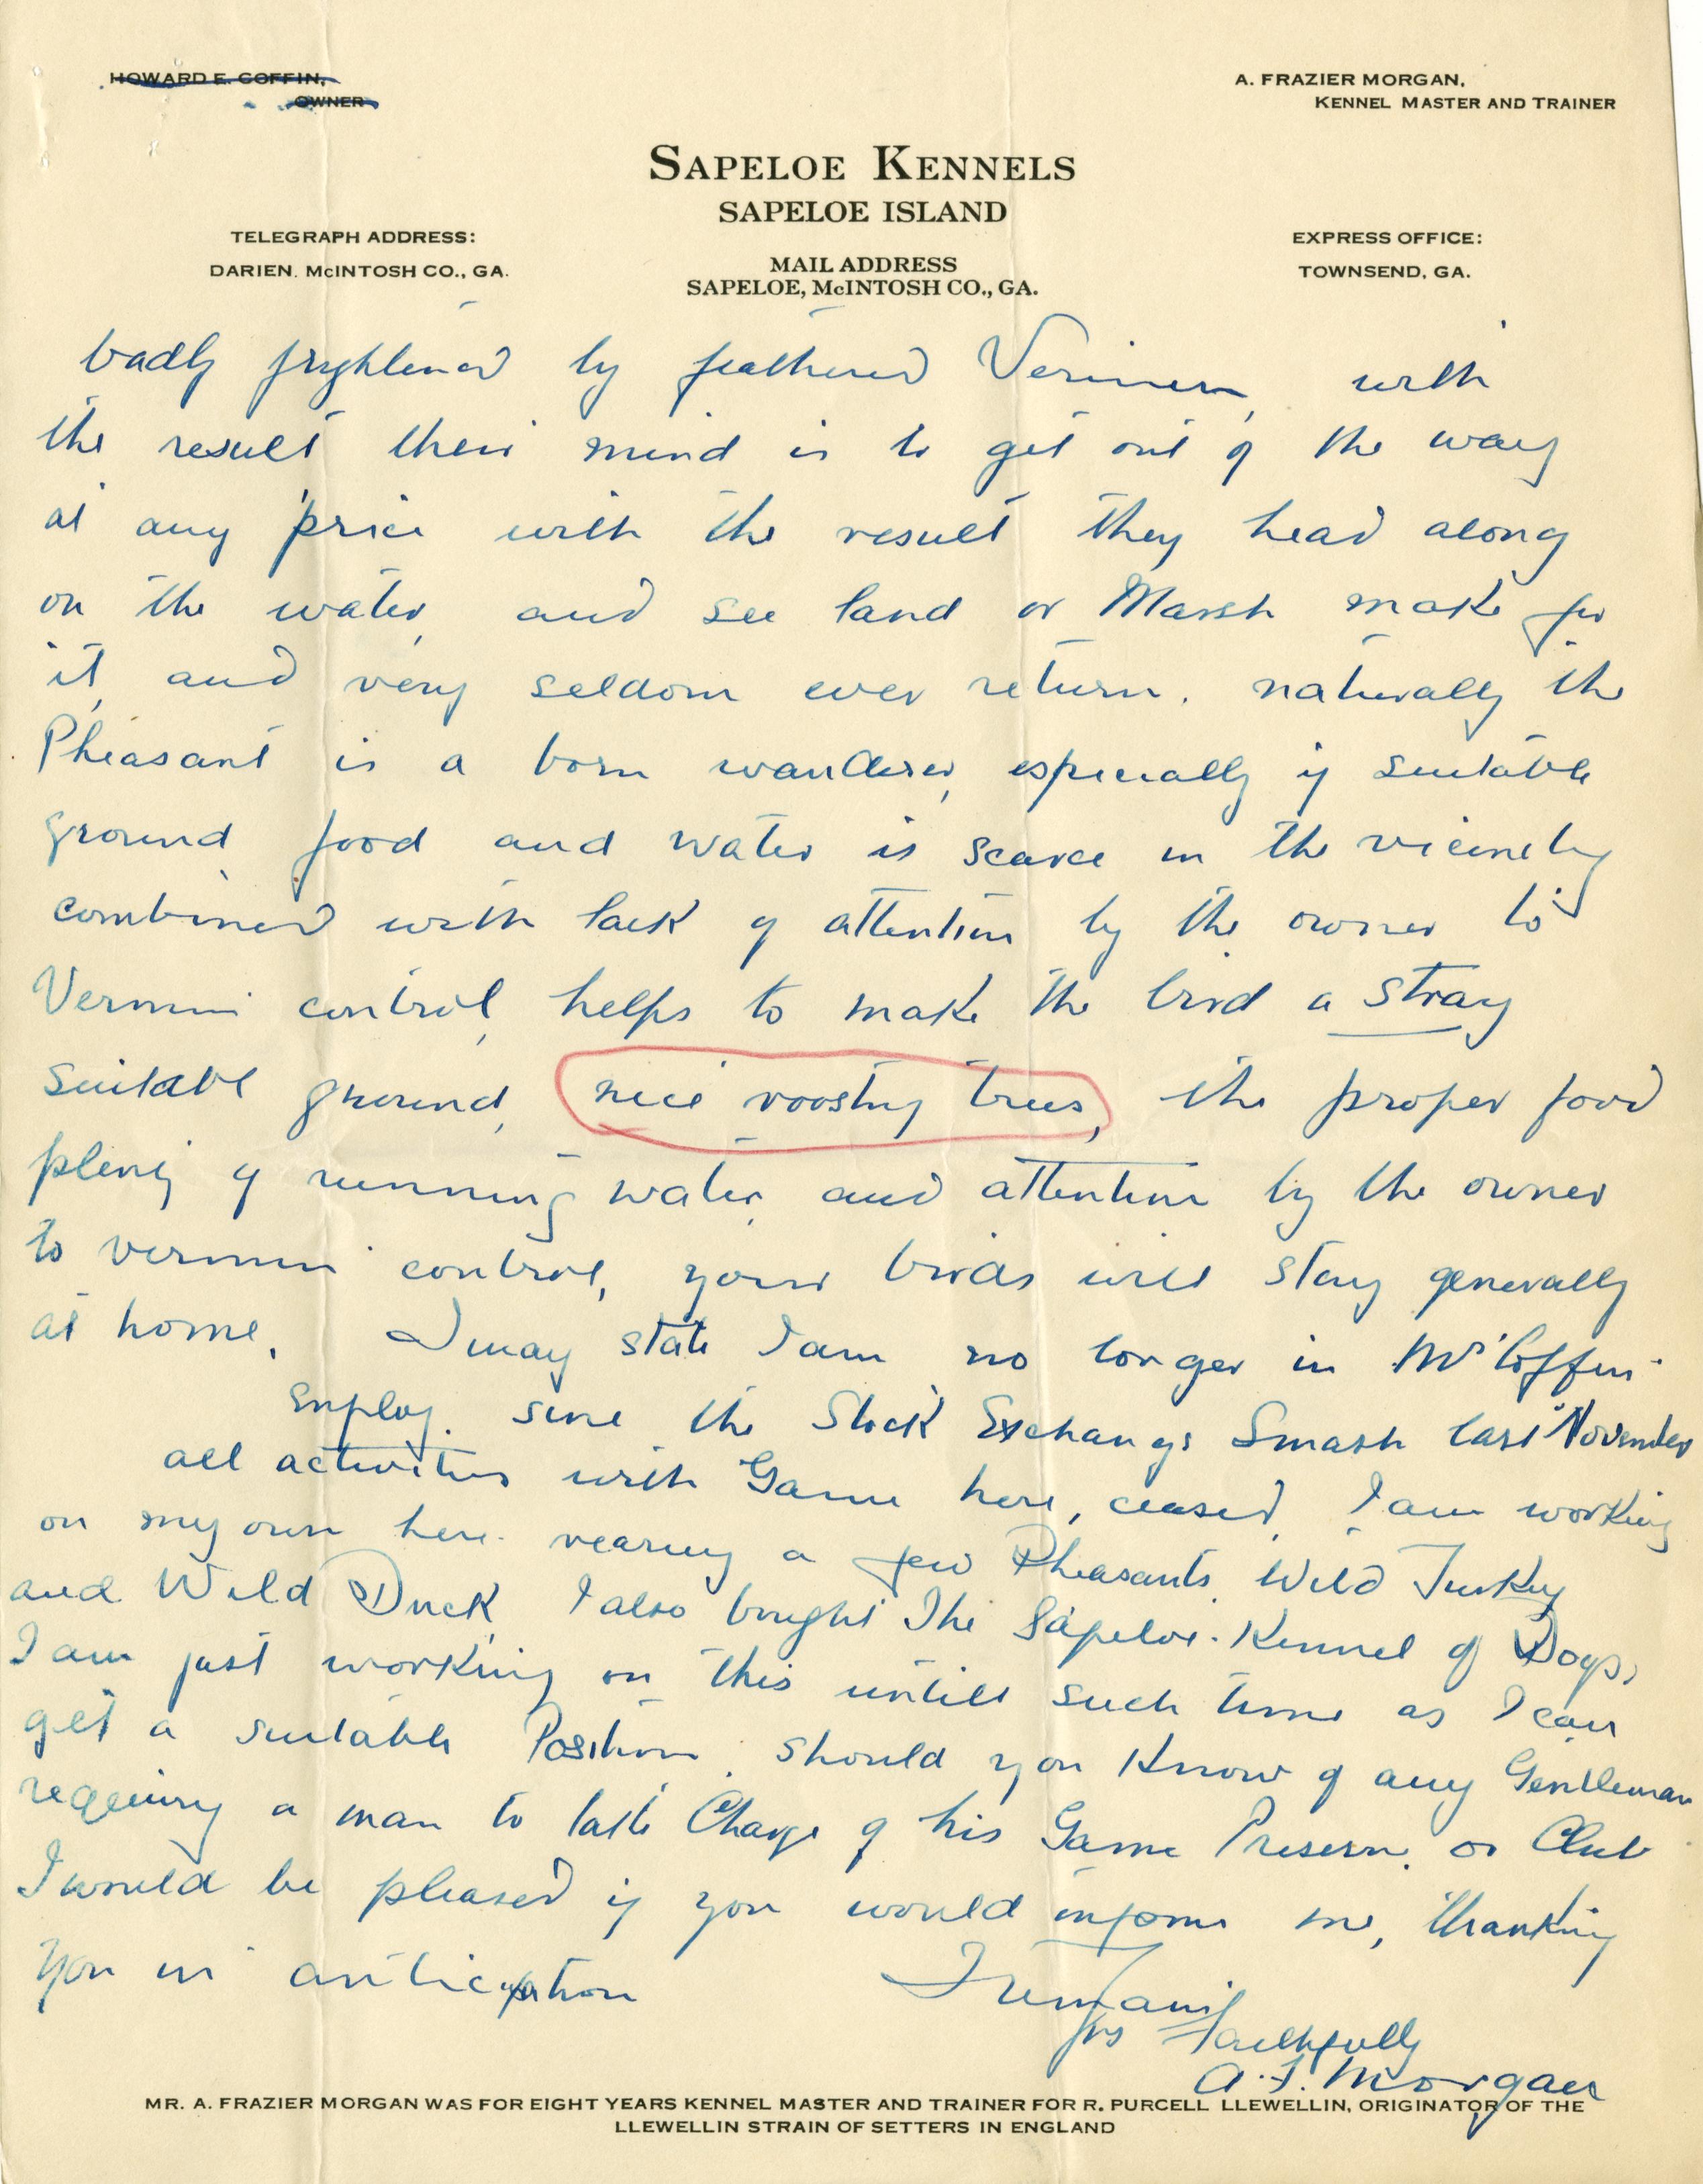 HOWARD E. COFFIN,
OWNER
A. FRAZIER MORGAN,
KENNEL MASTER AND TRAINER
SAPELOE KENNELS
SAPELOE ISLAND
TELEGRAPH ADDRESS:
DARIEN. McINTOSH CO., GA.
MAIL ADDRESS
SAPELOE, McINTOSH CO., GA.
EXPRESS OFFICE:
TOWNSEND, GA.
badly frightened by feathered Vermin, with
the result their mind is to get out of the way
at any price with the result they head along
on the water, and see land or Marsh make for
it, and very seldom ever return. naturally the
Pheasant is a born wanderer, especially if suitable
ground food and water is scarce in the vicinity
combined with lack of attention by the owner to
Vermin control, helps to make the bird a stray
suitable ground, nice roosting trees, the proper food
plenty of running water, and attention by the owner
to vermin control, your birds will stay generally
at home. I may state I am no longer in Mr Coffin
employ. since the Stock Exchange Smash last November
all activities with Game here, ceased, I am working
on my own here. rearing a few Pheasants, Wild Turkey
and Wild Duck, I also bought The Sapeloe. Kennel of Dogs,
I am just working on this untill such time as I can
get a suitable Position. should you know of any Gentleman
requiring a man to take Charge of his Game Preserve. or Club
I would be pleased if you would inform me, thanking
you in anticipation
I remain
yrs Faithfully
A. F. Morgan
MR. A. FRAZIER MORGAN WAS FOR EIGHT YEARS KENNEL MASTER AND TRAINER FOR R. PURCELL LLEWELLIN, ORIGINATOR OF THE
LLEWELLIN STRAIN OF SETTERS IN ENGLAND